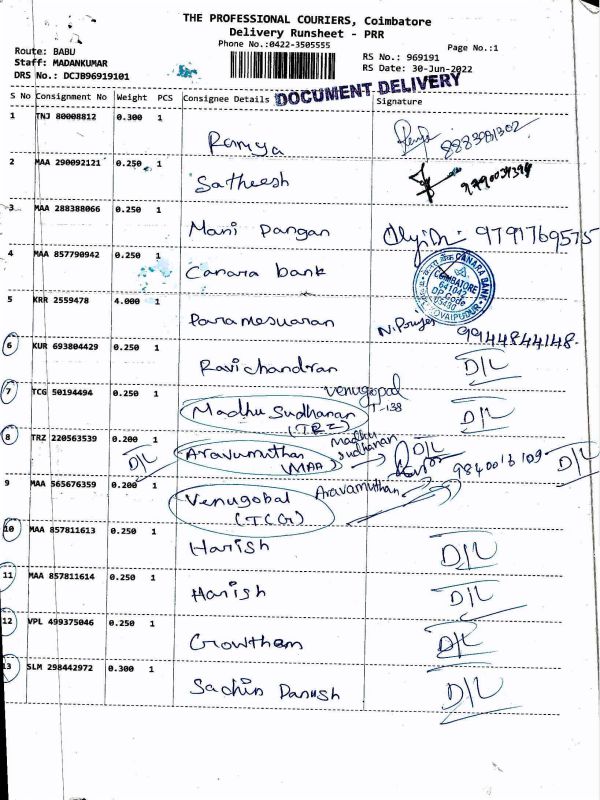 THE PROFESSIONAL COURIERS, Coimbatore
Delivery Runsheet - PRR
Phone No.:0422-3505555
Page No.:1
Route: BABU
Staff: MADANKUMAR
DRS No.: DCJB96919101
RS No.: 969191
RS Date: 30-Jun-2022
DOCUMENT DELIVERY
S No Consignment No Weight PCS Consignee Details Signature
1 TNJ 80008812 0.300 1 Ramya 8883981302
2 MAA 290092121 0.250 1 Satheesh
3 MAA 288388066 0.250 1 Mani Pangan 9791769575
4 MAA 857790942 0.250 1 Canara bank
CANARA BANK COIMBATORE 641042 DP Code KOVAIPUDUR
5 KRR 2559478 4.000 1 Paramesuaran 9944844148
6 KUR 693804429 0.250 1 Ravichandran D/L
7 TCG 50194494 0.250 1 Madhu Sudhanan (TRZ) venugopal T-138 D/L
8 TRZ 220563539 0.200 1 D/L Aravumuthan (MAA) madhu sudhanan D/L 9840016109 D/L
9 MAA 565676359 0.200 1 Venugobal (TCG) Aravamuthan
10 MAA 857811613 0.250 1 Harish D/L
11 MAA 857811614 0.250 1 Harish D/L
12 VPL 499375046 0.250 1 Gowtham D/L
13 SLM 298442972 0.300 1 Sachin Danush D/L